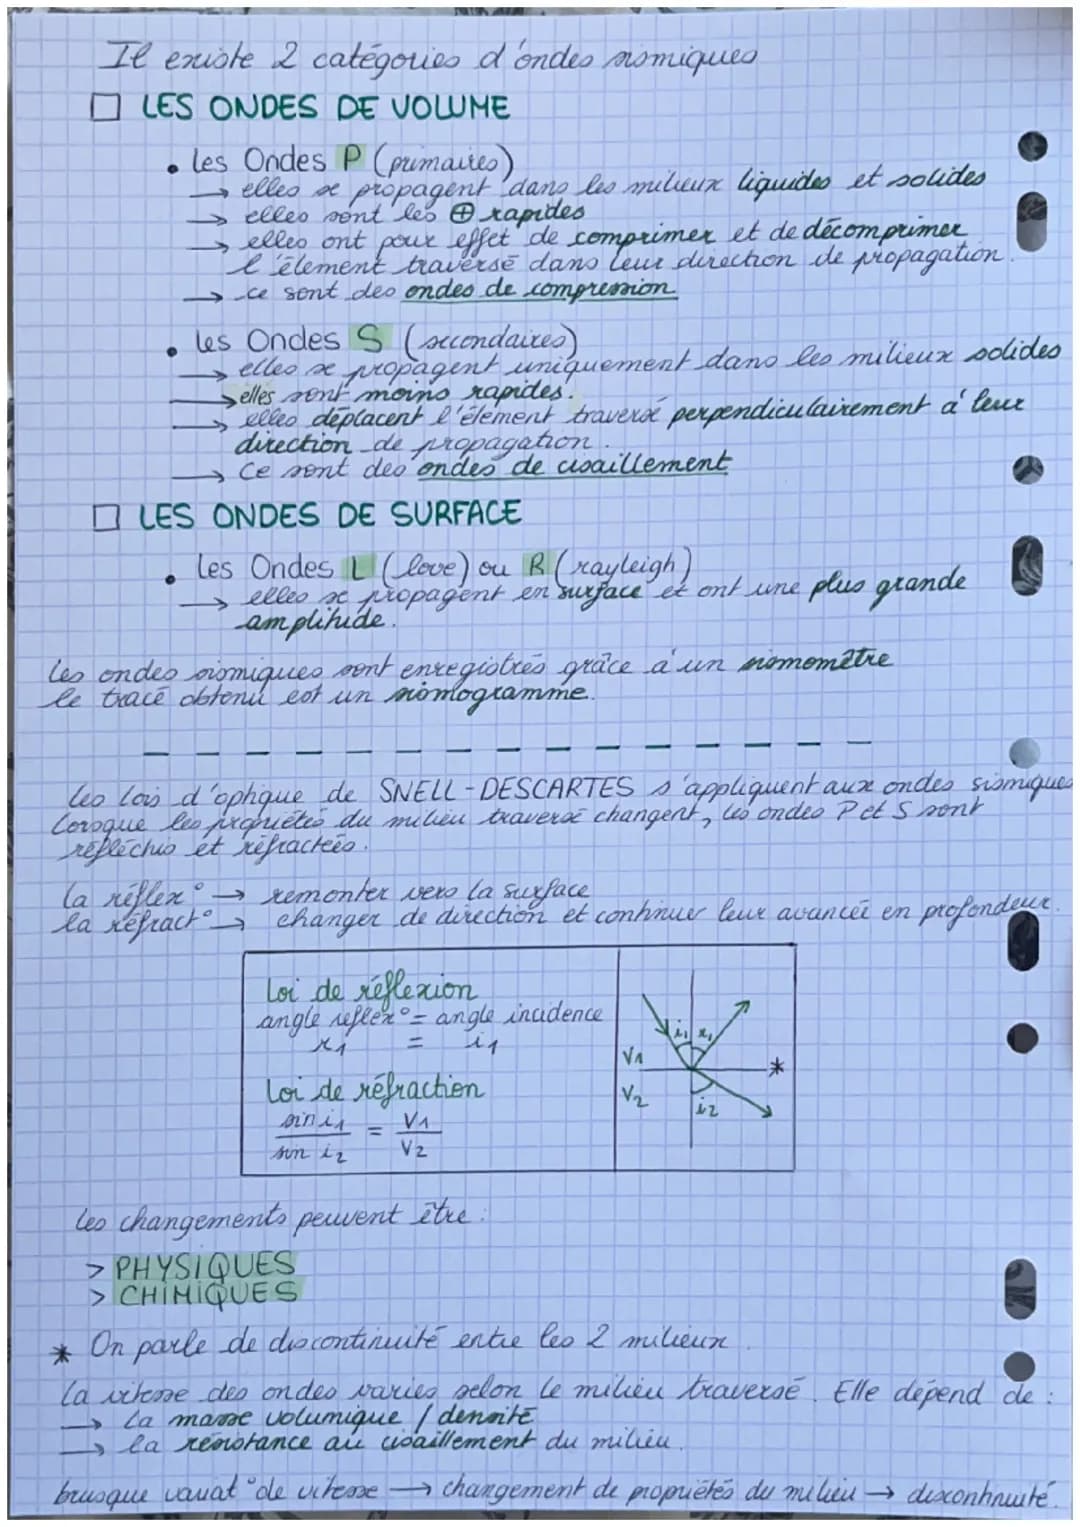 Il existe 2 catégories d'ondes sismiques
□ LES ONDES DE VOLUME
• Les Ondes P (primaires)
→ elles se propagent dans les milieux liquides et solides
→ elles sont les ⊕ rapides
→ elles ont pour effet de comprimer et de décomprimer
l'élement traversé dans leur direction de propagation.
→ ce sont des ondes de compression
• Les Ondes S (secondaires)
→ elles se propagent uniquement dans les milieux solides
→ elles sont moins rapides.
→ elles déplacent l'élement traversé perpendiculairement à leur
direction de propagation.
→ Ce sont des ondes de cisaillement
□ LES ONDES DE SURFACE
• Les Ondes L (love) ou R (rayleigh)
→ elles se propagent en surface et ont une plus grande
amplitude.
Les ondes sismiques sont enregistrés grâce à un sismomètre
le tracé obtenu est un sismogramme.
Les lois d'optique de SNELL-DESCARTES s'appliquent aux ondes sismiques
Lorsque les propriétés du milieu traversé changent, les ondes P et S sont
réfléchis et réfractées.
La réflex° → remonter vers la surface
la réfract° → changer de direction et continuer leur avancée en profondeur.
Loi de réflexion
angle reflex° = angle incidence
r1 = i1
Loi de réfraction
sin i1 / sin i2 = V1 / V2
i1 r1
V1 *
V2 i2
Les changements peuvent être :
> PHYSIQUES
> CHIMIQUES
* On parle de discontinuité entre les 2 milieux
La vitesse des ondes varies selon le milieu traversé. Elle dépend de :
→ La masse volumique / densité
→ la résistance au cisaillement du milieu.
brusque variat° de vitesse → changement de propriétés du milieu → discontinuité.